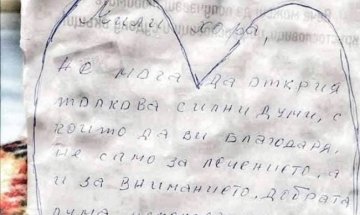 хора,
НЕ МОГА ДА ОТКРИЯ
ТОЛКОВА СИЛНИ ДУМИ, С
КОИТО ДА ВИ БЛАГОДАРЯ.
НЕ САМО ЗА ЛЕЧЕНИЕТО, А
И ЗА ВНИМАНИЕТО, ДОБРАТА
ДУМА